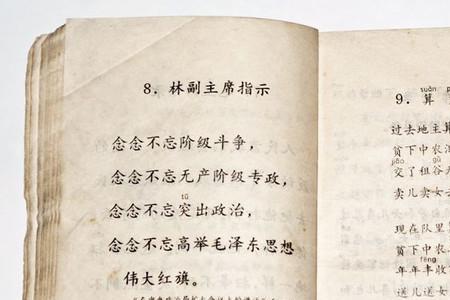 8. 林副主席指示
念念不忘阶级斗争，
念念不忘无产阶级专政，
tū
念念不忘突出政治，
念念不忘高举毛泽东思想
伟大红旗。
suàn
9. 算
过去地主算
贫下中农
jiāo gǔ
交了租谷
卖儿卖女
现在队里
贫下中农
fēng
年年丰收
送儿送